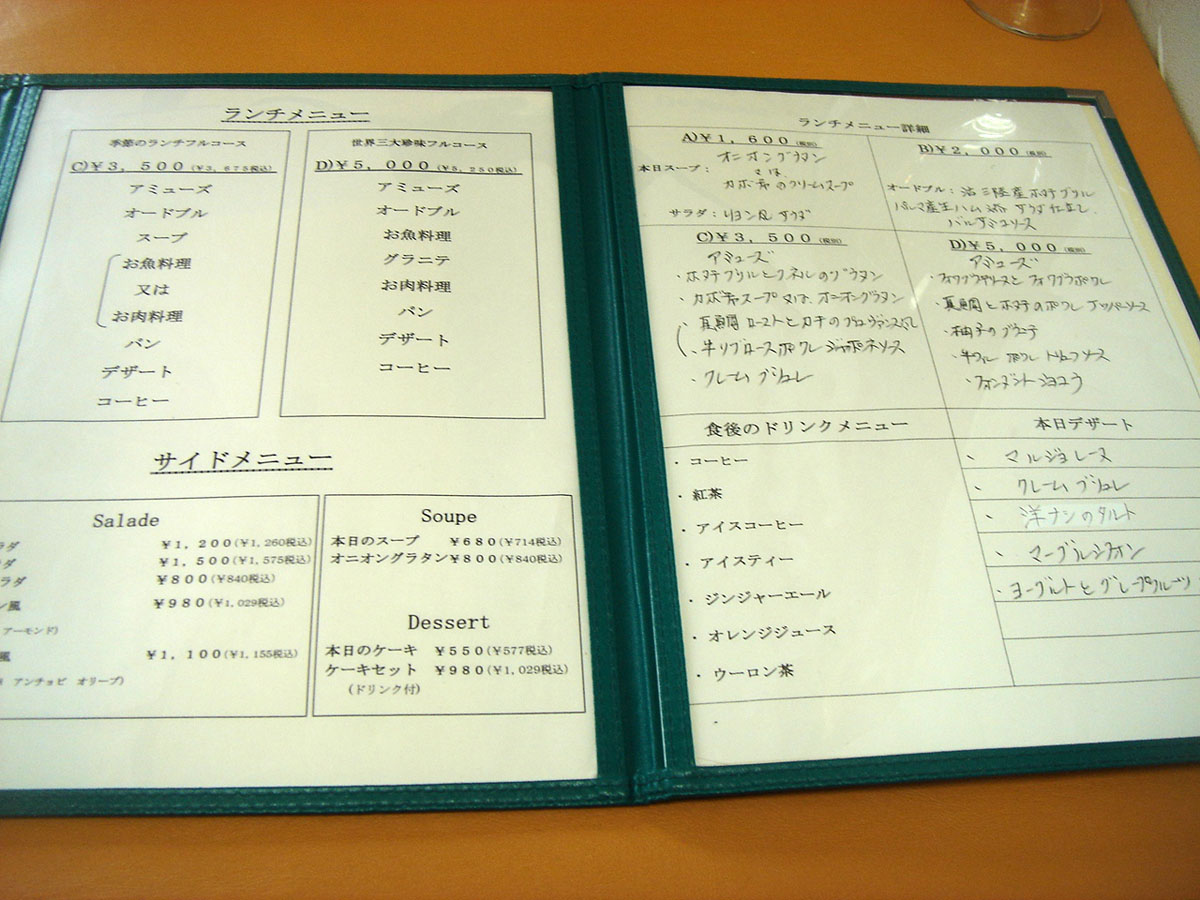 ランチメニュー
季節のランチフルコース
C)￥3,500(￥3,675税込)
アミューズ
オードブル
スープ
お魚料理
又は
お肉料理
パン
デザート
コーヒー
世界三大珍味フルコース
D)￥5,000(￥5,250税込)
アミューズ
オードブル
お魚料理
グラニテ
お肉料理
パン
デザート
コーヒー
サイドメニュー
Salade
ラダ ￥1,200(￥1,260税込)
ラダ ￥1,500(￥1,575税込)
ラダ ￥800(￥840税込)
ン風 ￥980(￥1,029税込)
アーモンド)
風 ￥1,100(￥1,155税込)
アンチョビ オリーブ)
Soupe
本日のスープ ￥680(￥714税込)
オニオングラタン￥800(￥840税込)
Dessert
本日のケーキ ￥550(￥577税込)
ケーキセット ￥980(￥1,029税込)
(ドリンク付)
ランチメニュー詳細
A)￥1,600(税別)
オニオングラタン
本日スープ： 又は、
カボチャのクリームスープ
サラダ：リヨン風サラダ
B)￥2,000(税別)
オードブル：活三陸産ホタテグリル
パルマ産生ハム添 サラダ仕立し、
バルサミコソース
C)￥3,500(税別)
アミューズ
・ホタテグリルとクネルのグラタン
・カボチャスープ 又は、オニオングラタン
・真鯛ローストとカキのプロヴァンス風
・牛リブロースポワレ ジャポネソース
・クレームブリュレ
D)￥5,000(税別)
アミューズ
・フォワグラテリーヌと フォワグラポワレ
・真鯛とホタテのポワレ
・柚子のグラニテ
・牛フィレ ポワレ トリュフソース
・フォンダンショコラ
食後のドリンクメニュー
・コーヒー
・紅茶
・アイスコーヒー
・アイスティー
・ジンジャーエール
・オレンジジュース
・ウーロン茶
本日デザート
・マルジョレーヌ
・クレームブリュレ
・洋ナシのタルト
・マーブルシフォン
・ヨーグルトとグレープフルーツ